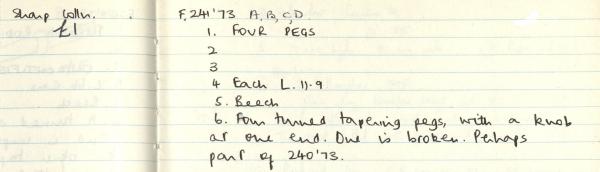 Sharp Colln.
£1
F.241'73 A,B,C,D.
1. FOUR PEGS
2
3
4 Each L. 11.9
5. Beech
6. Four turned tapering pegs, with a knob
at one end. One is broken. Perhaps
part of 240'73.